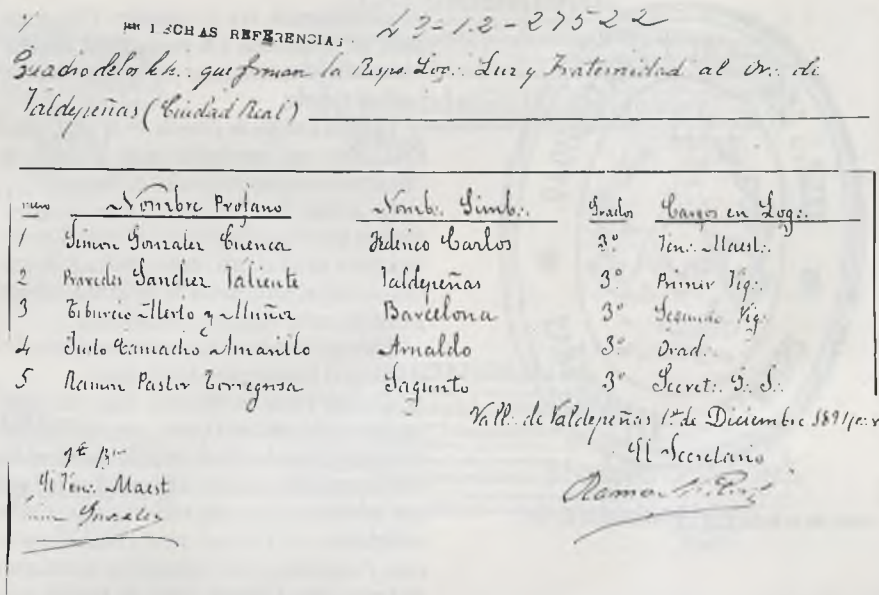 HECHAS REFERENCIAS. 43-12-27522
Cuadro de los hh∴ que forman la Resp∴ Log∴ Luz y Fraternidad al Or∴ de
Valdepeñas (Ciudad Real)
Nombre Profano Nomb∴ Simb∴ Grados Cargos en Log∴
1 Simon Gonzalez Cuenca Federico Carlos 3º Ven∴ Maest∴
2 Sanchez Valiente Valdepeñas 3º Primer Vig∴
3 Tiburcio Merlo y Muñoz Barcelona 3º Segundo Vig∴
4 Justo Camacho Amarillo Arnaldo 3º Orad∴
5 Ramon Pastor Torregrosa Sagunto 3º Secret∴ G∴ S∴
Vall∴ de Valdepeñas 1º de Diciembre 1891
El Secretario
El Ven∴ Maest
Gonzalez
Ramon